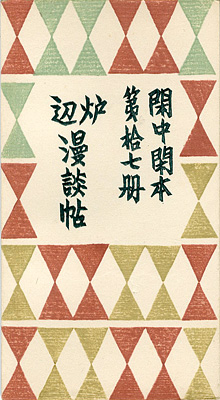 閑中閑本
第拾七冊
炉
辺漫談帖